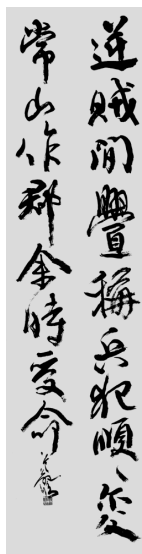 逆賊間舋稱兵犯順
常山作郡余時受命